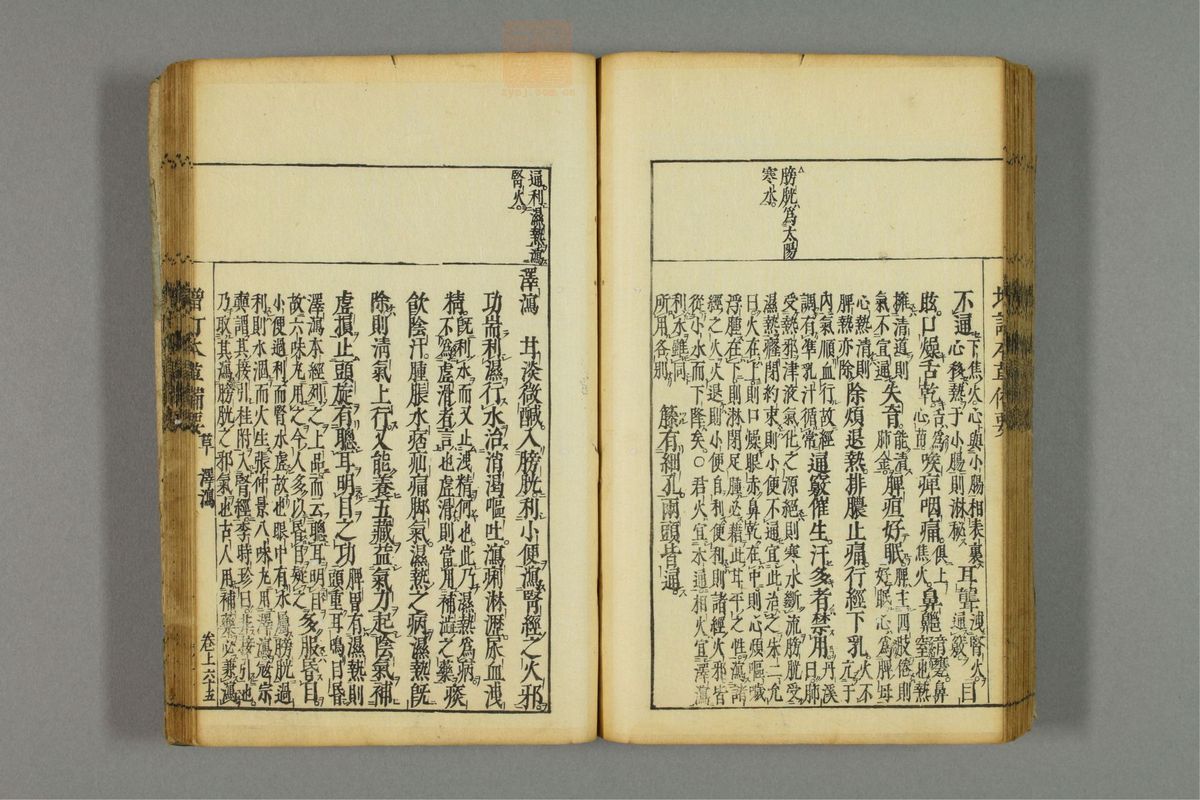 膀胱為太陽
寒水。
不通。
下焦火心與小腸相表裏
心移熱于小腸則淋秘
耳聾
洩腎火
通竅
目
眩。口燥舌乾
舌為
心苗
喉痺咽痛
俱上
焦火
鼻齆
音甕鼻
窒也熱
擁清道則
氣不宜通
失音
能清
肺金
脾疸好眠
脾主四肢倦則
好眠心為脾母
心熱清則
脾熱亦除
除煩退熱排膿止痛行經下乳
火不
亢于
內氣順血行故經
調有準乳汁循常
通竅催生。汗多者禁用
丹溪
曰肺
受熱邪津液氣化之源絕則寒水斷流膀胱受
濕熱癃閉約束則小便不通宜此治之朱二允
曰火在上則口燥眼赤鼻乾在中則心煩嘔噦
浮腫在下則淋閉足腫必藉此甘平之性瀉諸
經之火火退則小便自利便利則諸經火邪皆
從小水而下降矣。○君火宜木通相火宜澤瀉
利水雖同
所用各別
藤有細孔兩頭皆通
通利濕熱瀉
腎火。
澤瀉 甘淡微鹹入膀胱利小便瀉腎經之火邪
功耑利濕行水治消渴嘔吐瀉痢淋瀝尿血洩
精。
既利水而又止洩精何也此乃濕熱為病
不為虛滑者言也虛滑則當用補澀之藥
痰
飲陰汗。腫脹水痞疝痛腳氣濕熱之病濕熱既
除則清氣上行又能養五藏益氣力起陰氣補
虛損止頭旋有聰耳明目之功
脾胃有濕熱則
頭重耳鳴目昏
澤瀉本經列之上品而云聰耳明目
故六味丸用之今人多以昏目疑之
多服昏目
小便過利而腎水虛故也眼中有水屬膀胱過
利則水涸而火生張仲景八味丸用澤瀉寇宗
奭謂其接引桂附入腎經李時珍曰非接引也
乃取其瀉膀胱之邪氣也古人用補藥必兼瀉
增訂本草備要 草 澤瀉 卷上六十五